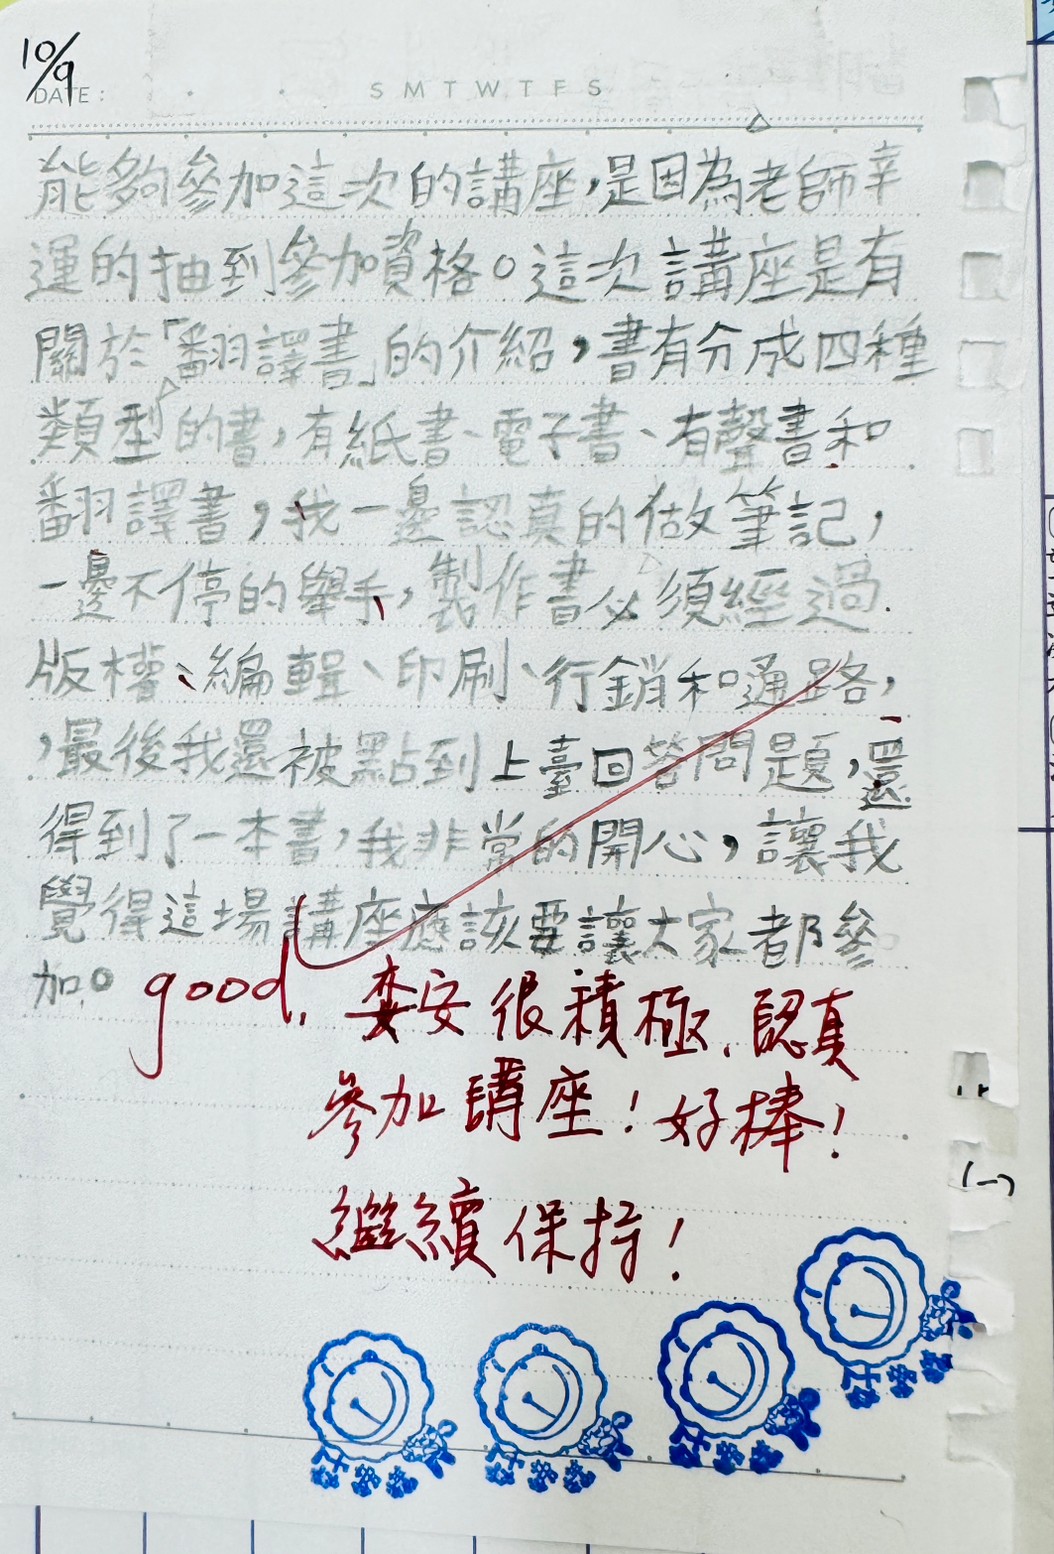 10/9
DATE:
S M T W T F S
能夠參加這次的講座,是因為老師幸
運的抽到參加資格。這次講座是有
關於「翻譯書」的介紹,書有分成四種
類型的書,有紙書、電子書、有聲書和
翻譯書,我一邊認真的做筆記,
一邊不停的舉手,製作書必須經過
版權、編輯、印刷、行銷和通路,
,最後我還被點到上臺回答問題,還
得到了一本書,我非常的開心,讓我
覺得這場講座應該要讓大家都參
加。
good, 安很積極、認真
參加講座!好棒!
繼續保持!